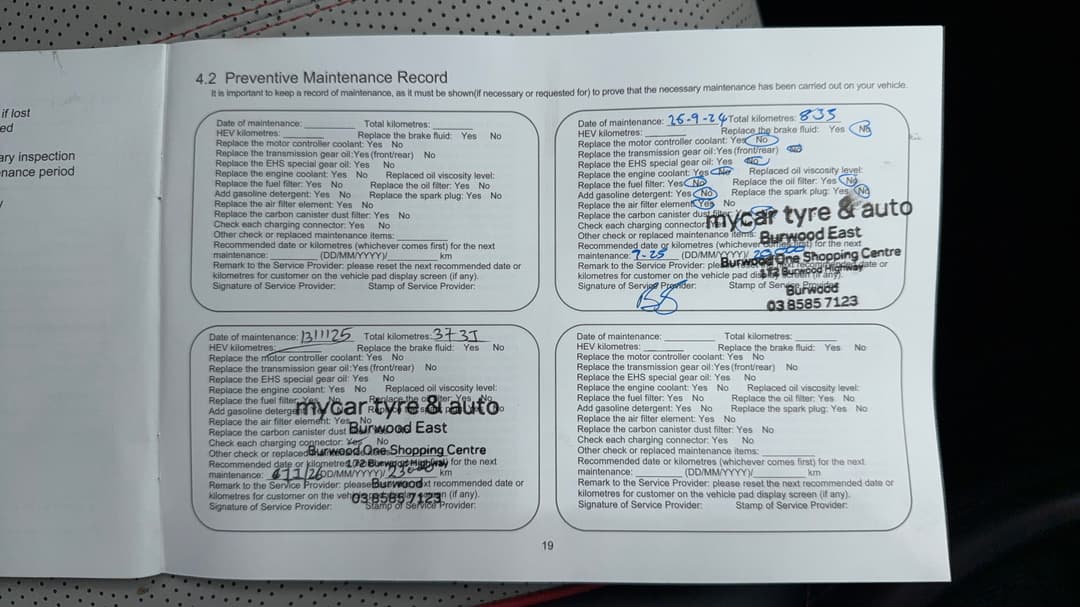 if lost
ed
ary inspection
enance period
y
4.2 Preventive Maintenance Record
It is important to keep a record of maintenance, as it must be shown(if necessary or requested for) to prove that the necessary maintenance has been carried out on your vehicle.
Date of maintenance: Total kilometres:
HEV kilometres: Replace the brake fluid: Yes No
Replace the motor controller coolant: Yes No
Replace the transmission gear oil:Yes (front/rear) No
Replace the EHS special gear oil: Yes No
Replace the engine coolant: Yes No Replaced oil viscosity level:
Replace the fuel filter: Yes No Replace the oil filter: Yes No
Add gasoline detergent: Yes No Replace the spark plug: Yes No
Replace the air filter element: Yes No
Replace the carbon canister dust filter: Yes No
Check each charging connector: Yes No
Other check or replaced maintenance items:
Recommended date or kilometres (whichever comes first) for the next
maintenance: (DD/MM/YYYY)/ km
Remark to the Service Provider: please reset the next recommended date or
kilometres for customer on the vehicle pad display screen (if any).
Signature of Service Provider: Stamp of Service Provider:
Date of maintenance: 26-9-24 Total kilometres: 835
HEV kilometres: Replace the brake fluid: Yes No
Replace the motor controller coolant: Yes No
Replace the transmission gear oil:Yes (front/rear) No
Replace the EHS special gear oil: Yes No
Replace the engine coolant: Yes No Replaced oil viscosity level:
Replace the fuel filter: Yes No Replace the oil filter: Yes No
Add gasoline detergent: Yes No Replace the spark plug: Yes No
Replace the air filter element: Yes No
Replace the carbon canister dust filter:
Check each charging connector:
Other check or replaced maintenance items:
Recommended date or kilometres (whichever comes first) for the next
maintenance: 7-25 (DD/MM/YYYY)/
Remark to the Service Provider: please reset the next recommended date or
kilometres for customer on the vehicle pad display screen (if any).
Signature of Service Provider: Stamp of Service Provider:
mycar tyre & auto
Burwood East
Burwood One Shopping Centre
172 Burwood Highway
Burwood
03 8585 7123
Date of maintenance: Total kilometres:
HEV kilometres: Replace the brake fluid: Yes No
Replace the motor controller coolant: Yes No
Replace the transmission gear oil:Yes (front/rear) No
Replace the EHS special gear oil: Yes No
Replace the engine coolant: Yes No Replaced oil viscosity level:
Replace the fuel filter: Yes No Replace the oil filter: Yes No
Add gasoline detergent: Yes No
Replace the air filter element: Yes No
Replace the carbon canister dust
Check each charging connector: Yes No
Other check or replaced
Recommended date or kilometres for the next
maintenance: (DD/MM/YYYY)/ km
Remark to the Service Provider: please next recommended date or
kilometres for customer on the vehicle screen (if any).
Signature of Service Provider: Stamp of Service Provider:
mycar tyre & auto
Burwood East
Burwood One Shopping Centre
172 Burwood Highway
Burwood
03 8585 7123
Date of maintenance: Total kilometres:
HEV kilometres: Replace the brake fluid: Yes No
Replace the motor controller coolant: Yes No
Replace the transmission gear oil:Yes (front/rear) No
Replace the EHS special gear oil: Yes No
Replace the engine coolant: Yes No Replaced oil viscosity level:
Replace the fuel filter: Yes No Replace the oil filter: Yes No
Add gasoline detergent: Yes No Replace the spark plug: Yes No
Replace the air filter element: Yes No
Replace the carbon canister dust filter: Yes No
Check each charging connector: Yes No
Other check or replaced maintenance items:
Recommended date or kilometres (whichever comes first) for the next
maintenance: (DD/MM/YYYY)/ km
Remark to the Service Provider: please reset the next recommended date or
kilometres for customer on the vehicle pad display screen (if any).
Signature of Service Provider: Stamp of Service Provider:
19